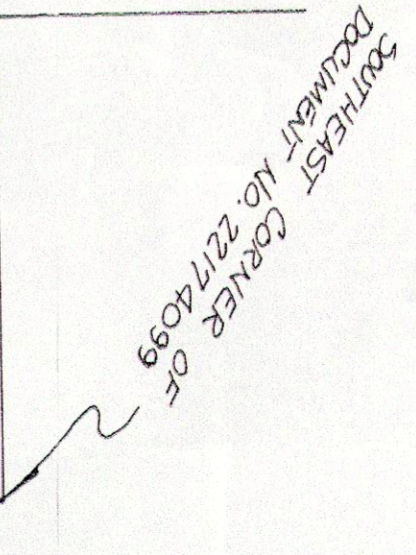 SOUTHEAST CORNER OF
DOCUMENT NO. 22174099